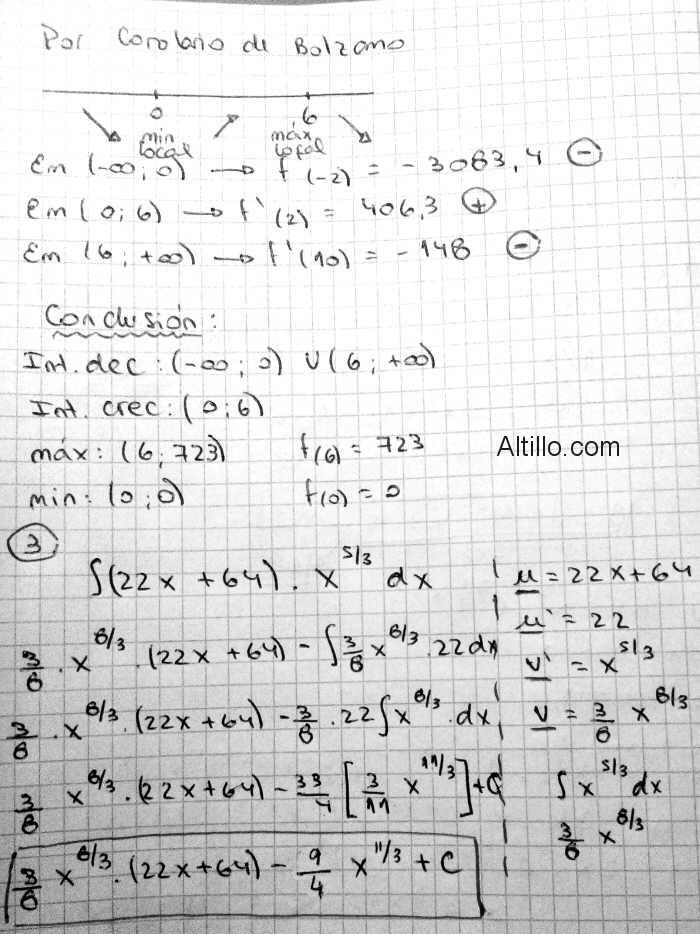 Por Corolario de Bolzano
0 6
min local máx local
En (-∞; 0) → f'(-2) = -3083,4 ⊖
En (0; 6) → f'(2) = 406,3 ⊕
En (6; +∞) → f'(10) = -148 ⊖
Conclusión:
Int. dec: (-∞; 0) U (6; +∞)
Int. crec: (0; 6)
máx: (6; 723) f(6) = 723
Altillo.com
min: (0; 0) f(0) = 0
3
∫(22x + 64) . x^5/3 dx
3/8 . x^8/3 . (22x + 64) - ∫ 3/8 x^8/3 . 22 dx
3/8 . x^8/3 . (22x + 64) - 3/8 . 22 ∫ x^8/3 . dx
3/8 x^8/3 . (22x + 64) - 33/4 [3/11 x^11/3] + C
3/8 x^8/3 . (22x + 64) - 9/4 x^11/3 + C
u = 22x + 64
u' = 22
v' = x^5/3
v = 3/8 x^8/3
∫ x^5/3 dx
3/8 x^8/3